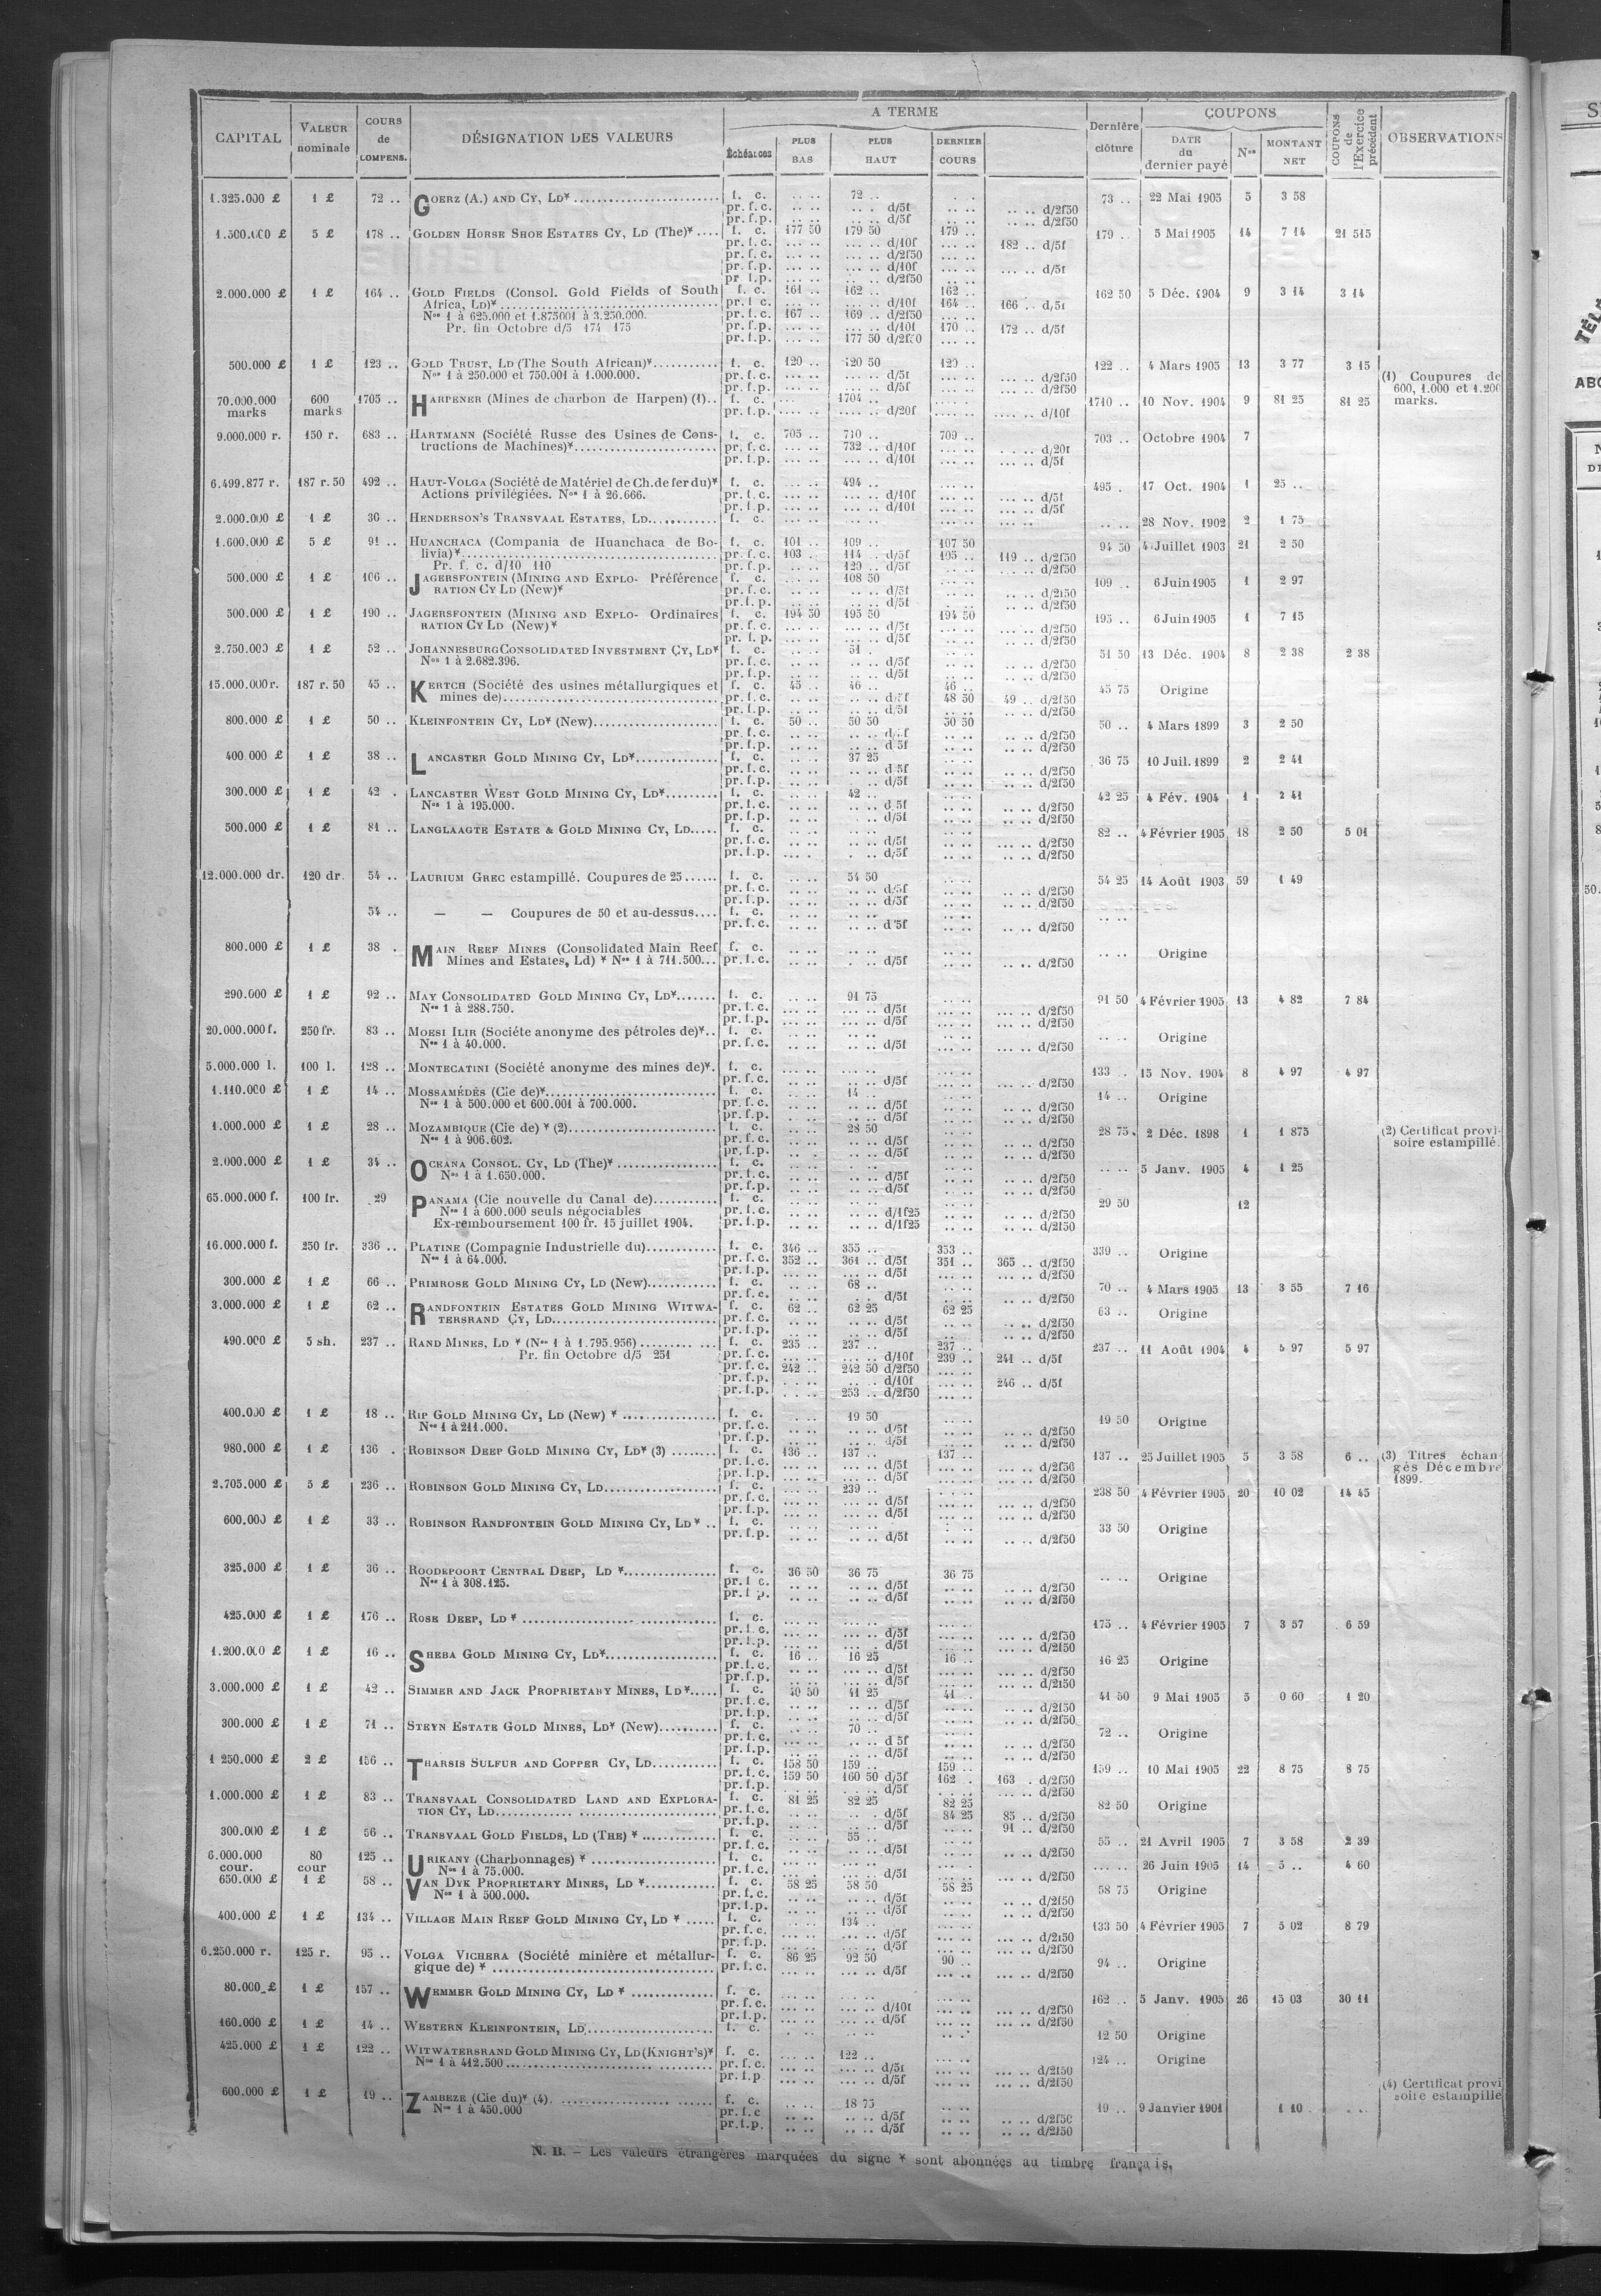 CAPITAL | VALEUR nominale | COURS de COMPENS. | DÉSIGNATION DES VALEURS | A TERME | Dernière clôture | COUPONS | COUPONS de l'Exercice précédent | OBSERVATIONS
Échéances | PLUS BAS | PLUS HAUT | DERNIER COURS | DATE du dernier payé | Nos | MONTANT NET
1.325.000 £ 1 £ 72 .. GOERZ (A.) AND CY, LD* f. c. 72 .. 73 .. 22 Mai 1905 5 3 58
pr. f. c. d/5f d/2f50
pr. f. p. d/5f d/2f50
1.500.000 £ 5 £ 178 .. GOLDEN HORSE SHOE ESTATES CY, LD (The)* f. c. 177 50 179 50 179 .. 179 .. 5 Mai 1905 14 7 14 21 515
pr. f. c. d/10f 182 .. d/5f
pr. f. c. d/2f50
pr. f. p. d/10f d/5f
pr. f. p. d/2f50
2.000.000 £ 1 £ 164 .. GOLD FIELDS (Consol. Gold Fields of South f. c. 161 .. 162 .. 162 .. 162 50 5 Déc. 1904 9 3 14 3 14
Africa, LD)* pr. f. c. d/10f 164 .. 166 .. d/5f
Nos 1 à 625.000 et 1.875001 à 3.250.000. pr. f. c. 167 .. 169 .. d/2f50
Pr. fin Octobre d/5 174 175 pr. f. p. d/10f 170 .. 172 .. d/5f
pr. f. p. 177 50 d/2f50
500.000 £ 1 £ 123 .. GOLD TRUST, LD (The South African)* f. c. 120 .. 120 50 120 .. 122 .. 4 Mars 1905 13 3 77 3 15
Nos 1 à 250.000 et 750.001 à 1.000.000. pr. f. c. d/5f d/2f50 (1) Coupures de
pr. f. p. d/5f d/2f50 600, 1.000 et 1.200
70.000.000 600 1705 .. HARPENER (Mines de charbon de Harpen) (1).. f. c. 1704 .. 1710 .. 10 Nov. 1904 9 81 25 81 25 marks.
marks marks pr. f. p. d/20f d/10f
9.000.000 r. 150 r. 683 .. HARTMANN (Société Russe des Usines de Cons- f. c. 705 .. 710 .. 709 .. 703 .. Octobre 1904 7
tructions de Machines)* pr. f. c. 732 .. d/10f d/20f
pr. f. p. d/10f d/5f
6.499.877 r. 187 r. 50 492 .. HAUT-VOLGA (Société de Matériel de Ch. de fer du)* f. c. 494 .. 495 . 17 Oct. 1904 1 25 ..
Actions privilégiées. Nos 1 à 26.666. pr. f. c. d/10f d/5f
pr. f. p. d/10f d/5f
2.000.000 £ 1 £ 36 .. HENDERSON'S TRANSVAAL ESTATES, LD f. c. 28 Nov. 1902 2 1 75
1.600.000 £ 5 £ 91 .. HUANCHACA (Compania de Huanchaca de Bo- f. c. 101 .. 109 .. 107 50 94 50 4 Juillet 1903 21 2 50
livia)* pr. f. c. 103 .. 114 .. d/5f 105 .. 119 .. d/2f50
Pr. f. c. d/10 110 pr. f. p. 120 .. d/5f d/2f50
500.000 £ 1 £ 106 .. JAGERSFONTEIN (MINING AND EXPLO- Préférence f. c. 108 50 109 .. 6 Juin 1905 1 2 97
RATION CY LD (New)* pr. f. c. d/5f d/2f50
pr. f. p. d/5f d/2f50
500.000 £ 1 £ 190 .. JAGERSFONTEIN (MINING AND EXPLO- Ordinaires f. c. 194 50 195 50 194 50 195 .. 6 Juin 1905 1 7 15
RATION CY LD (New)* pr. f. c. d/5f d/2f50
pr. f. p. d/5f d/2f50
2.750.000 £ 1 £ 52 .. JOHANNESBURG CONSOLIDATED INVESTMENT CY, LD* f. c. 51 . 51 50 13 Déc. 1904 8 2 38 2 38
Nos 1 à 2.682.396. pr. f. c. d/5f d/2f50
pr. f. p. d/5f d/2f50
15.000.000 r. 187 r. 50 45 .. KERTCH (Société des usines métallurgiques et f. c. 45 .. 46 .. 46 .. 45 75 Origine
mines de) pr. f. c. d/5f 48 50 49 .. d/2f50
pr. f. p. d/5f d/2f50
800.000 £ 1 £ 50 .. KLEINFONTEIN CY, LD* (New) f. c. 50 .. 50 50 50 50 50 .. 4 Mars 1899 3 2 50
pr. f. c. d/5f d/2f50
pr. f. p. d 5f d/2f50
400.000 £ 1 £ 38 .. LANCASTER GOLD MINING CY, LD* f. c. 37 25 36 75 10 Juil. 1899 2 2 41
pr. f. c. d 5f d/2f50
pr. f. p. d/5f d/2f50
300.000 £ 1 £ 42 . LANCASTER WEST GOLD MINING CY, LD* f. c. 42 .. 42 25 4 Fév. 1904 1 2 41
Nos 1 à 195.000. pr. f. c. d 5f d/2f50
pr. f. p. d/5f d/2f50
500.000 £ 1 £ 81 .. LANGLAAGTE ESTATE & GOLD MINING CY, LD f. c. 82 .. 4 Février 1905 18 2 50 5 01
pr. f. c. d/5f d/2f50
pr. f. p. d/5f d/2f50
12.000.000 dr. 120 dr. 54 .. LAURIUM GREC estampillé. Coupures de 25 f. c. 54 50 54 25 14 Août 1903 59 1 49
pr. f. c. d/5f d/2f50
pr. f. p. d/5f d/2f50
54 .. — — Coupures de 50 et au-dessus f. c.
pr. f. c. d 5f d/2f50
800.000 £ 1 £ 38 . MAIN REEF MINES (Consolidated Main Reef f. c. Origine
Mines and Estates, Ld) * Nos 1 à 711.500 pr. f. c. d/5f d/2f50
290.000 £ 1 £ 92 .. MAY CONSOLIDATED GOLD MINING CY, LD* f. c. 91 75 91 50 4 Février 1905 13 4 82 7 84
Nos 1 à 288.750. pr. f. c. d/5f d/2f50
pr. f. p. d/5f d/2f50
20.000.000 f. 250 fr. 83 .. MOESI ILIR (Sociéte anonyme des pétroles de)* f. c. Origine
Nos 1 à 40.000. pr. f. c. d/5f d/2f50
5.000.000 l. 100 l. 128 .. MONTECATINI (Société anonyme des mines de)* f. c. 133 . 15 Nov. 1904 8 4 97 4 97
pr. f. c. d/5f d/2f50
1.110.000 £ 1 £ 14 .. MOSSAMÉDÈS (Cie de)* f. c. 14 .. 14 .. Origine
Nos 1 à 500.000 et 600.001 à 700.000. pr. f. c. d/5f d/2f50
pr. f. p. d/5f d/2f50
1.000.000 £ 1 £ 28 .. MOZAMBIQUE (Cie de) * (2) f. c. 28 50 28 75. 2 Déc. 1898 1 1 875 (2) Certificat provi-
Nos 1 à 906.602. pr. f. c. d/5f d/2f50 soire estampillé.
pr. f. p. d/5f d/2f50
2.000.000 £ 1 £ 34 .. OCEANA CONSOL. CY, LD (The)* f. c. 5 Janv. 1905 4 1 25
Nos 1 à 1.650.000. pr. f. c. d/5f d/2f50
pr. f. p. d/5f d/2f50
65.000.000 f. 100 fr. 29 PANAMA (Cie nouvelle du Canal de) f. c. 29 50 12
Nos 1 à 600.000 seuls négociables pr. f. c. d/1f25 d/2f50
Ex-remboursement 100 fr. 15 juillet 1904. pr. f. p. d/1f25 d/2f50
16.000.000 f. 250 fr. 336 .. PLATINE (Compagnie Industrielle du) f. c. 346 .. 355 .. 353 .. 339 .. Origine
Nos 1 à 64.000. pr. f. c. 352 .. 361 .. d/5f 351 .. 365 .. d/2f50
pr. f. p. d/5f d/2f50
300.000 £ 1 £ 66 .. PRIMROSE GOLD MINING CY, LD (New) f. c. 68 .. 70 .. 4 Mars 1905 13 3 55 7 16
pr. f. c. d/5f d/2f50
3.000.000 £ 1 £ 62 .. RANDFONTEIN ESTATES GOLD MINING WITWA- f. c. 62 .. 62 25 62 25 63 .. Origine
TERSRAND CY, LD pr. f. c. d/5f d/2f50
pr. f. p. d/5f d/2f50
490.000 £ 5 sh. 237 .. RAND MINES, LD * (Nos 1 à 1.795.956) f. c. 235 .. 237 .. 237 .. 237 .. 11 Août 1904 4 5 97 5 97
Pr. fin Octobre d/5 251 pr. f. c. d/10f 239 .. 241 .. d/5f
pr. f. c. 242 .. 242 50 d/2f50
pr. f. p. d/10f 246 .. d/5f
pr. f. p. 253 .. d/2f50
400.000 £ 1 £ 18 .. RIP GOLD MINING CY, LD (New) * f. c. 19 50 19 50 Origine
Nos 1 à 211.000. pr. f. c. d/5f d/2f50
pr. f. p. d/5f d/2f50
980.000 £ 1 £ 136 . ROBINSON DEEP GOLD MINING CY, LD* (3) f. c. 136 .. 137 .. 137 .. 137 .. 25 Juillet 1905 5 3 58 6 .. (3) Titres échan-
pr. f. c. d/5f d/2f50 gés Décembre
pr. f. p. d/5f d/2f50 1899.
2.705.000 £ 5 £ 236 .. ROBINSON GOLD MINING CY, LD f. c. 239 .. 238 50 4 Février 1905 20 10 02 14 45
pr. f. c. d/5f d/2f50
pr. f. p. d/5f d/2f50
600.000 £ 1 £ 33 .. ROBINSON RANDFONTEIN GOLD MINING CY, LD * f. c. 33 50 Origine
pr. f. p. d/5f d/2f50
325.000 £ 1 £ 36 .. ROODEPOORT CENTRAL DEEP, LD * f. c. 36 50 36 75 36 75 Origine
Nos 1 à 308.125. pr. f. c. d/5f d/2f50
pr. f. p. d/5f d/2f50
425.000 £ 1 £ 176 .. ROSE DEEP, LD * f. c. 175 .. 4 Février 1905 7 3 57 6 59
pr. f. c. d/5f d/2f50
pr. f. p. d/5f d/2f50
1.200.000 £ 1 £ 16 .. SHEBA GOLD MINING CY, LD* f. c. 16 .. 16 25 16 .. 16 25 Origine
pr. f. c. d/5f d/2f50
pr. f. p. d/5f d/2f50
3.000.000 £ 1 £ 42 .. SIMMER AND JACK PROPRIETARY MINES, LD* f. c. 40 50 41 25 41 .. 41 50 9 Mai 1905 5 0 60 1 20
pr. f. c. d/5f d/2f50
pr. f. p. d/5f d/2f50
300.000 £ 1 £ 71 .. STEYN ESTATE GOLD MINES, LD* (New) f. c. 70 .. 72 .. Origine
pr. f. c. d 5f d/2f50
pr. f. p. d/5f d/2f50
1 250.000 £ 2 £ 156 .. THARSIS SULFUR AND COPPER CY, LD f. c. 158 50 159 .. 159 .. 159 .. 10 Mai 1905 22 8 75 8 75
pr. f. c. 159 50 160 50 d/5f 162 . 163 . d/2f50
pr. f. p. d/5f d/2f50
1.000.000 £ 1 £ 83 .. TRANSVAAL CONSOLIDATED LAND AND EXPLORA- f. c. 81 25 82 25 82 25 82 50 Origine
TION CY, LD pr. f. c. d/5f 84 25 85 .. d/2f50
pr. f. p. d/5f 91 .. d/2f50
300.000 £ 1 £ 56 .. TRANSVAAL GOLD FIELDS, LD (THE) * f. c. 55 .. 55 .. 21 Avril 1905 7 3 58 2 39
pr. f. c. d/5f d/2f50
6.000.000 80 125 .. URIKANY (Charbonnages) * f. c. 26 Juin 1905 14 5 .. 4 60
cour. cour Nos 1 à 75.000. pr. f. c. d/5f d/2f50
650.000 £ 1 £ 58 .. VAN DYK PROPRIETARY MINES, LD * f. c. 58 25 58 50 58 25 58 75 Origine
Nos 1 à 500.000. pr. f. c. d/5f d/2f50
pr. f. p. d/5f d/2f50
400.000 £ 1 £ 134 .. VILLAGE MAIN REEF GOLD MINING CY, LD * f. c. 134 .. 133 50 4 Février 1905 7 5 02 8 79
pr. f. c. d/5f d/2f50
pr. f. p. d/5f d/2f50
6.250.000 r. 125 r. 95 .. VOLGA VICHERA (Société minière et métallur- f. c. 86 25 92 50 90 .. 94 .. Origine
gique de) * pr. f. c. d/5f d/2f50
80.000 £ 1 £ 157 .. WEMMER GOLD MINING CY, LD * f. c. 162 .. 5 Janv. 1905 26 15 03 30 11
pr. f. c. d/10f d/2f50
pr. f. p. d/5f d/2f50
160.000 £ 1 £ 14 .. WESTERN KLEINFONTEIN, LD f. c. 12 50 Origine
425.000 £ 1 £ 122 .. WITWATERSRAND GOLD MINING CY, LD (KNIGHT'S)* f. c. 122 .. 124 .. Origine
Nos 1 à 412.500 pr. f. c. d/5f d/2f50
pr. f. p d/5f d/2f50
600.000 £ 1 £ 19 .. ZAMBEZE (Cie du)* (4) f. c. 18 75 19 .. 9 Janvier 1901 1 10 (4) Certificat provi
Nos 1 à 450.000 pr. f. c d/5f d/2f50 soire estampillé
pr. f. p. d/5f d/2f50
N. B. — Les valeurs étrangères marquées du signe * sont abonnées au timbre français.